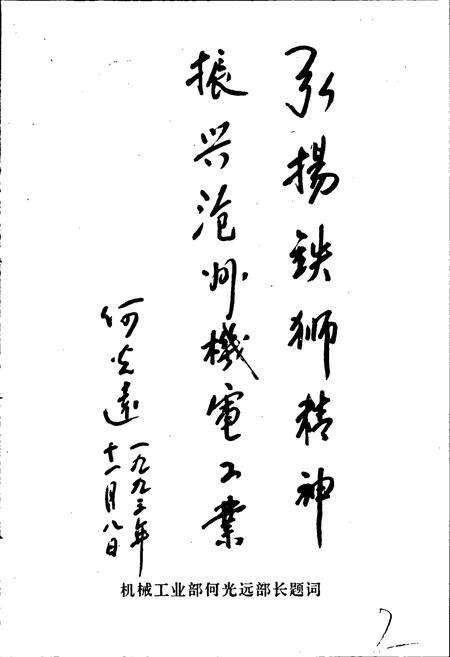 弘揚鉄狮精神
振兴沧州機電工業
何光遠
一九九三年
十一月八日
机械工业部何光远部长题词